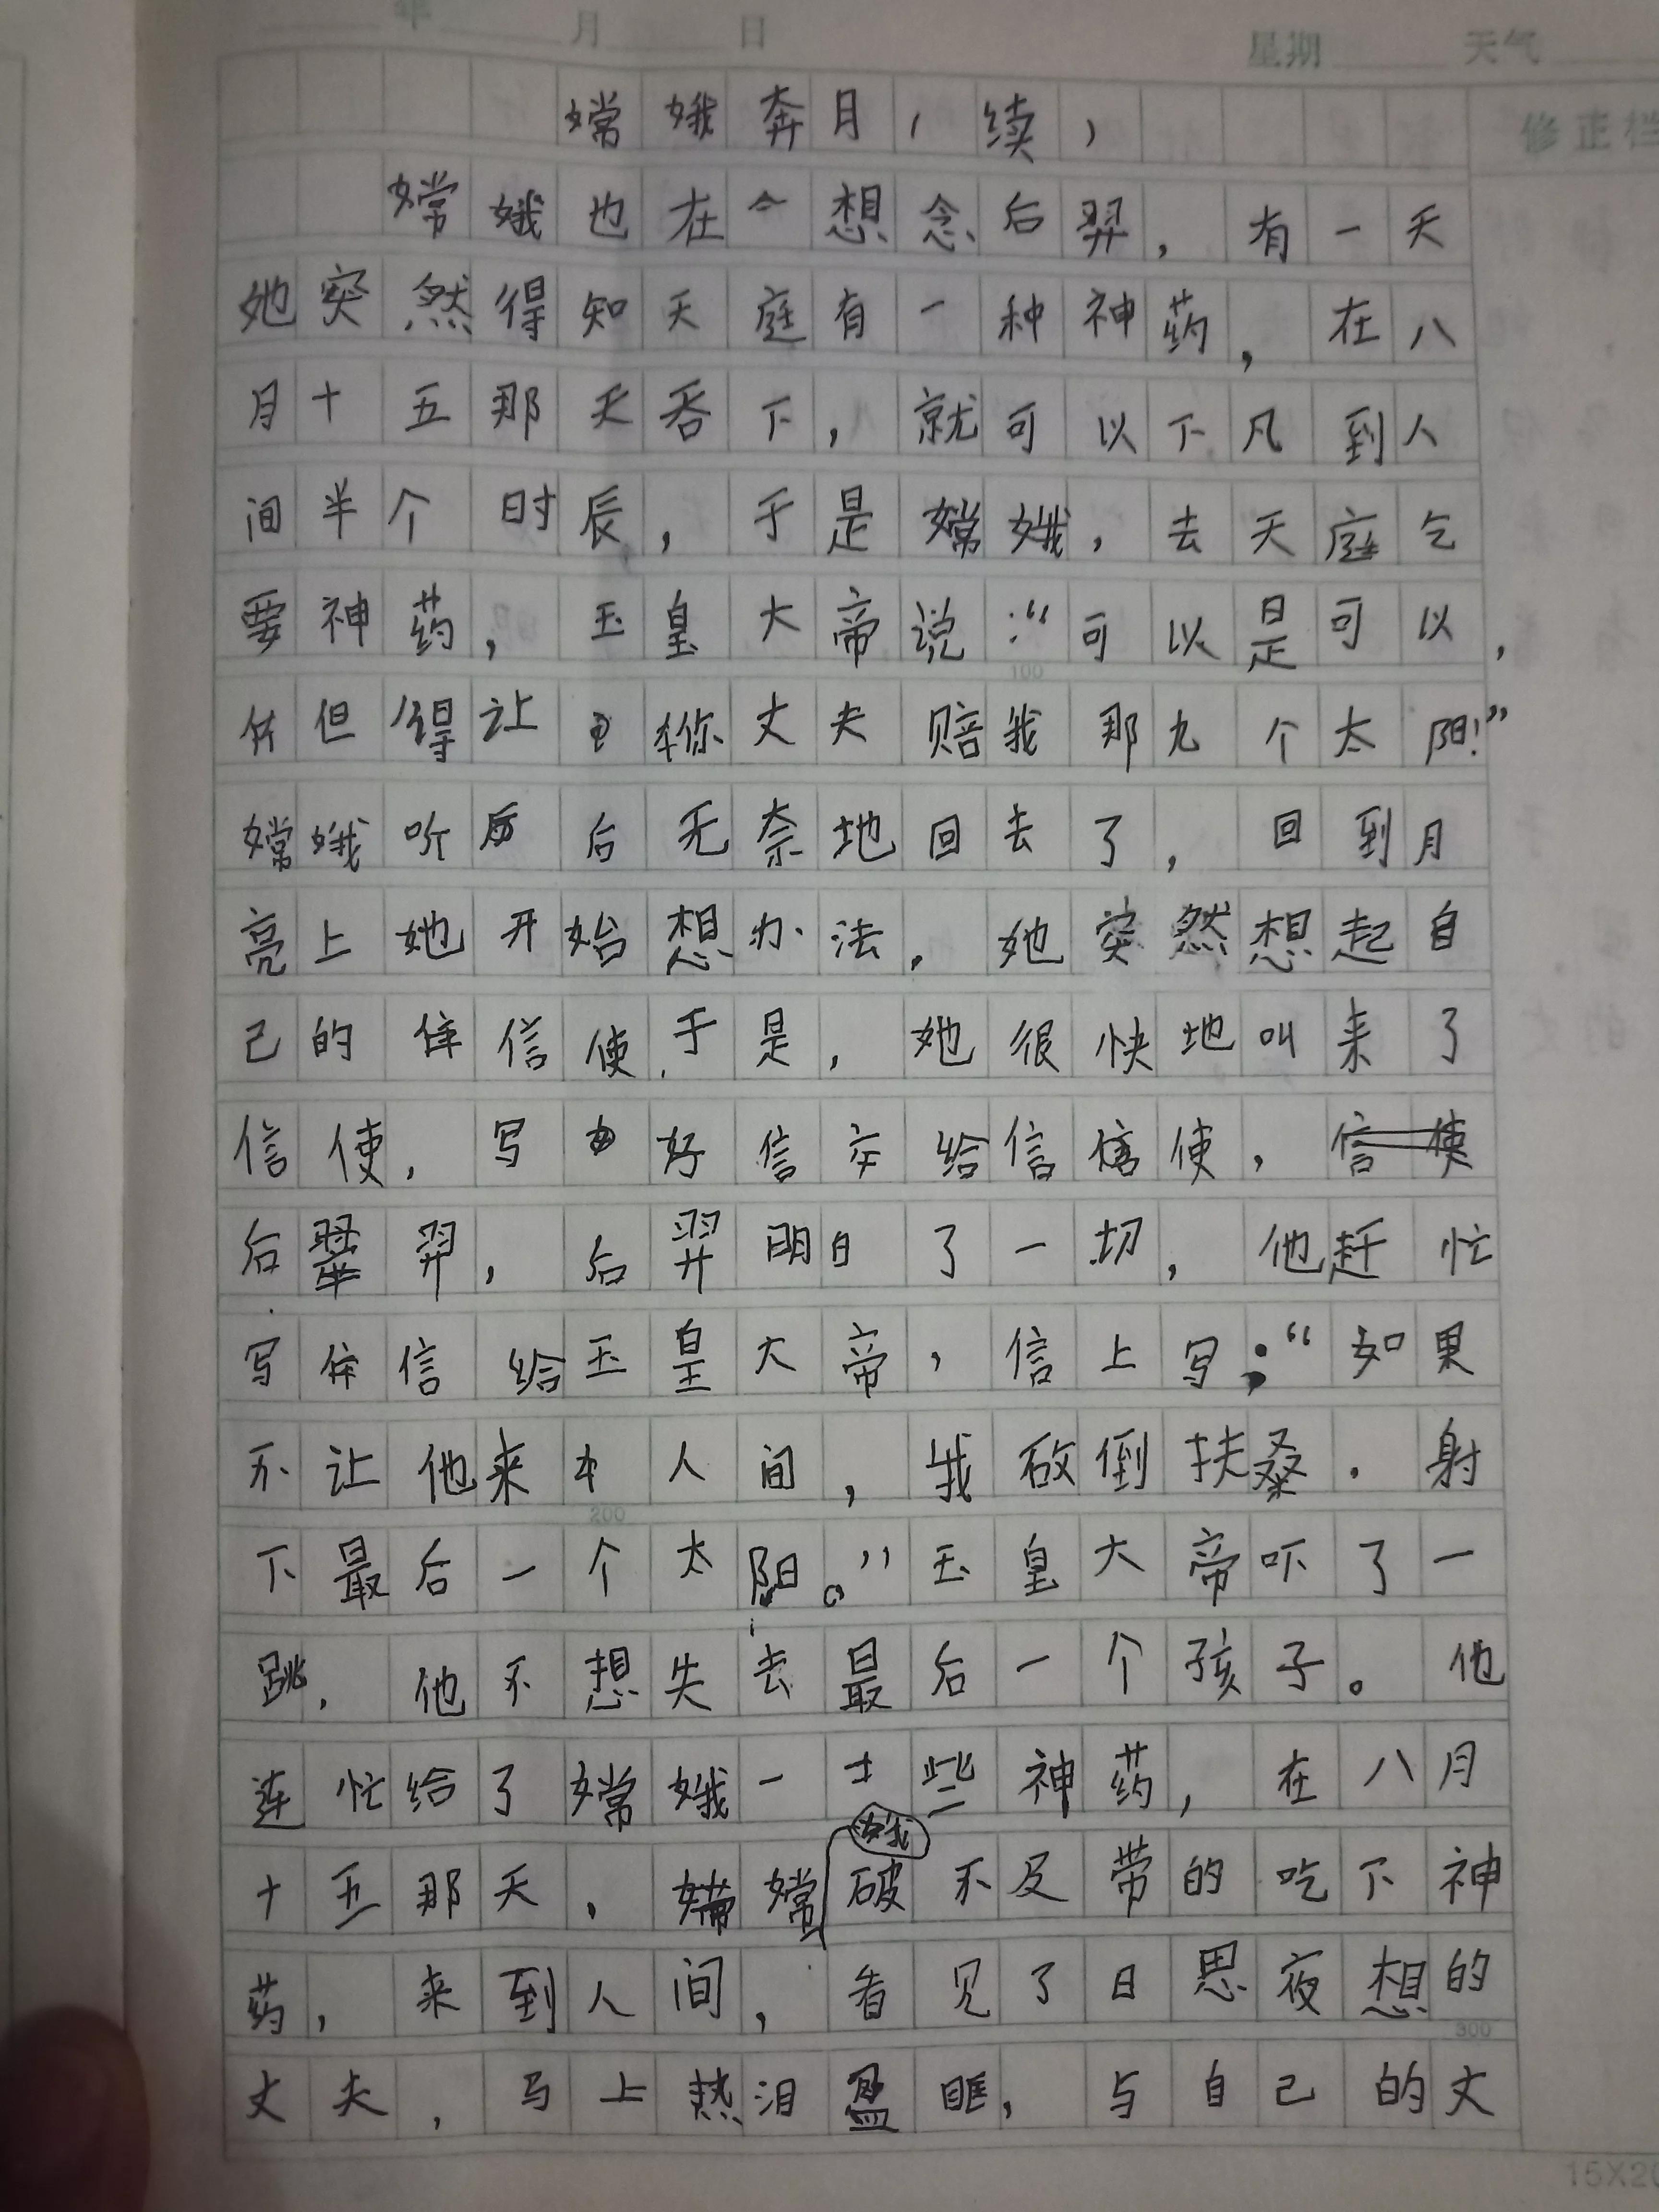 年 月 日 星期 天气
修正栏
嫦娥奔月(续)
嫦娥也在想念后羿,有一天
她突然得知天庭有一种神药,在八
月十五那天吞下,就可以下凡到人
间半个时辰,于是嫦娥,去天庭乞
要神药,玉皇大帝说:“可以是可以,
但得让你丈夫赔我那九个太阳!”
嫦娥听后无奈地回去了,回到月
亮上她开始想办法。她突然想起自
己的信使,于是,她很快地叫来了
信使,写好信交给信使,
后羿,后羿明白了一切,他赶忙
写信给玉皇大帝,信上写:“如果
不让他来人间,我砍倒扶桑.射
下最后一个太阳。”玉皇大帝吓了一
跳,他不想失去最后一个孩子。他
连忙给了嫦娥一些神药,在八月
十五那天,嫦娥破不及带的吃下神
药,来到人间,看见了日思夜想的
丈夫,马上热泪盈眶,与自己的丈
100
200
300
15X20